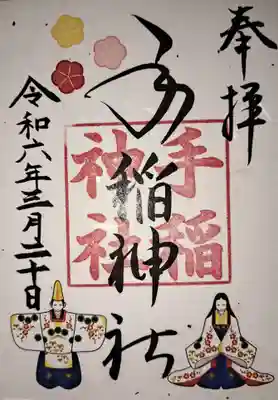 奉拝
手稲神社
手稲
神社
令和六年三月二十日